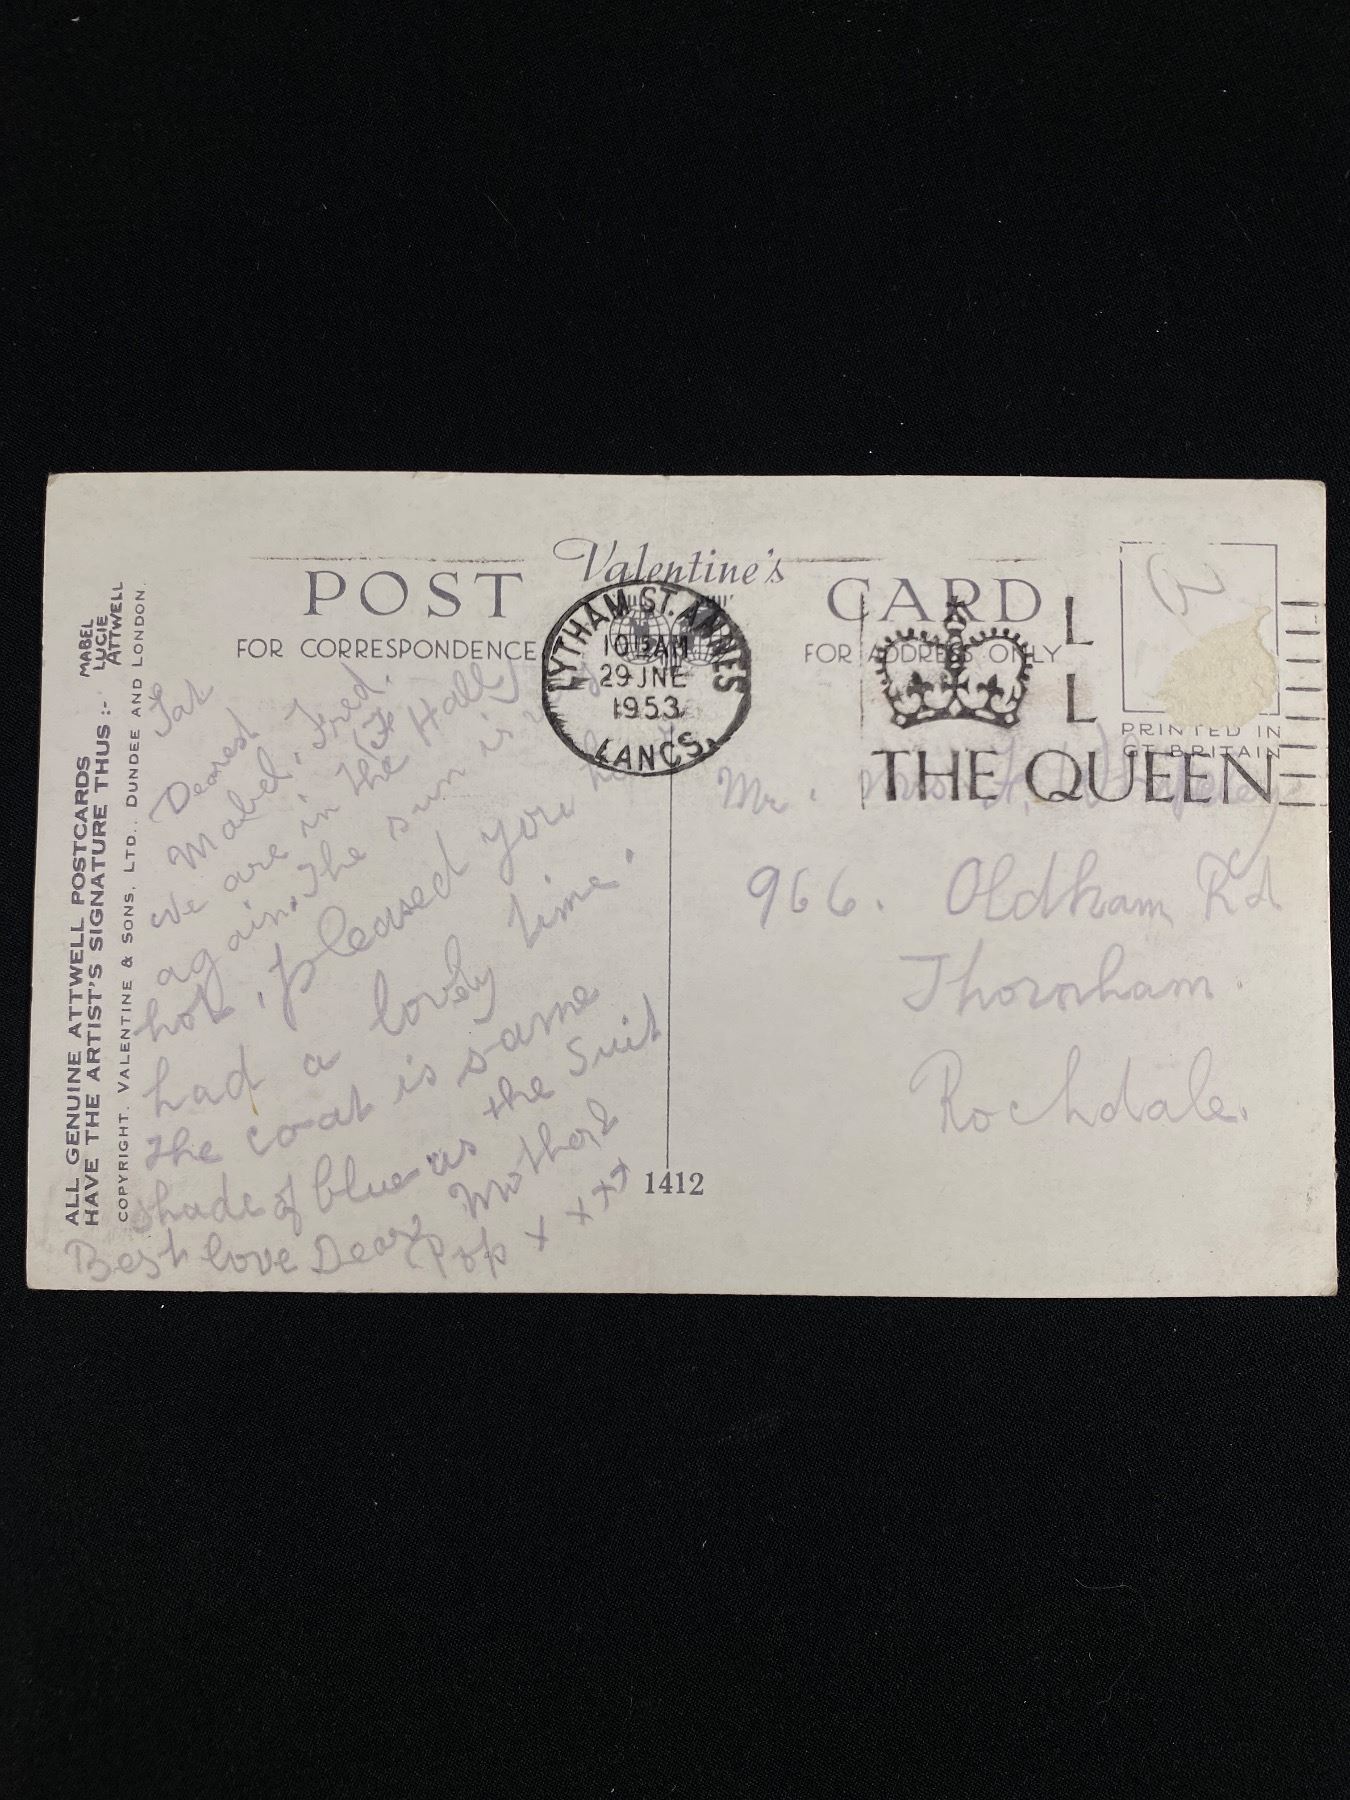 Valentine's
POST CARD
FOR CORRESPONDENCE
FOR ADDRESS ONLY
LYTHAM ST. ANNES
29 JNE
1953
LANCS.
L
L
THE QUEEN
PRINTED IN
GT BRITAIN
ALL GENUINE ATTWELL POSTCARDS
HAVE THE ARTIST'S SIGNATURE THUS :-
MABEL
LUCIE
ATTWELL
COPYRIGHT. VALENTINE & SONS, LTD., DUNDEE AND LONDON.
Sat
Dearest
Mabel. Fred.
We are in the Hall
again. The sun is
hot. pleased you
had a lovely time.
The coat is same
shade of blue as the Suit
Best love Dears Mother &
Pop x x x x
1412
Mr.
966. Oldham Rd
Thornham.
Rochdale.